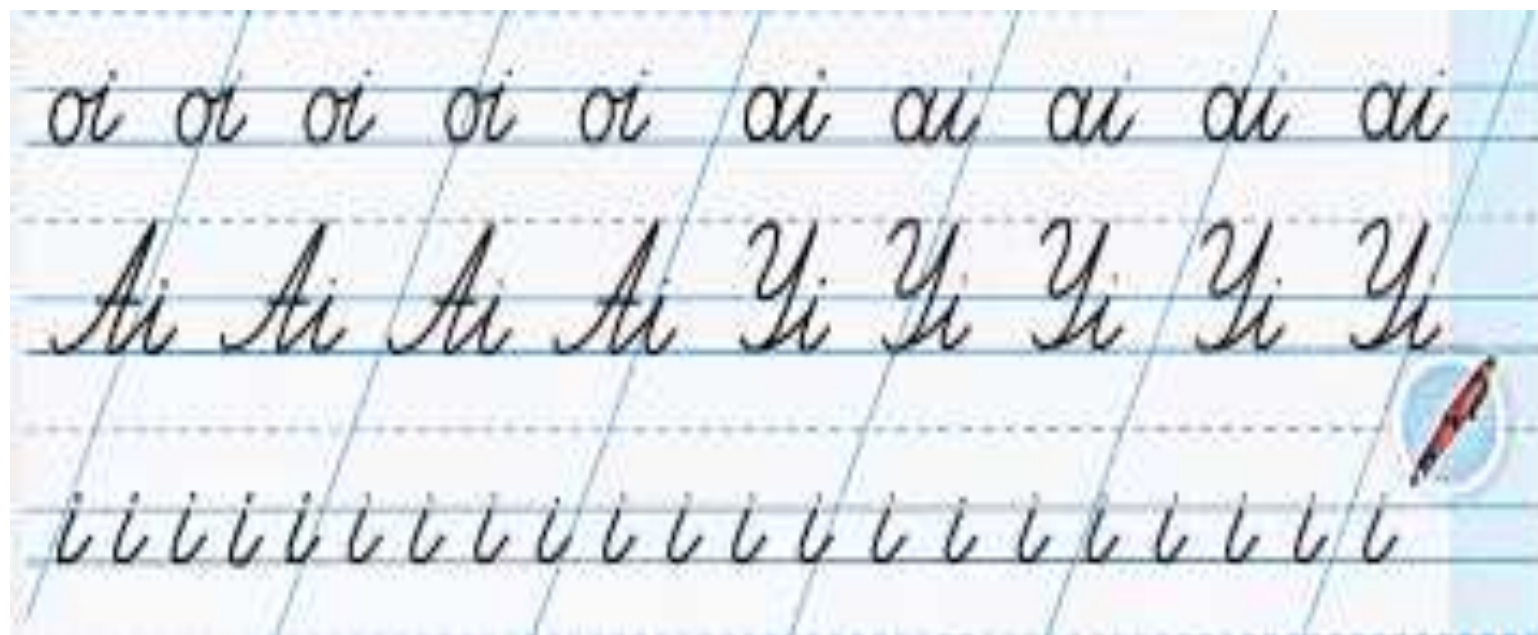 оі оі оі оі оі аі аі аі аі аі
Аі Аі Аі Аі Уі Уі Уі Уі Уі
і і і і і і і і і і і і і і і і і і і і і